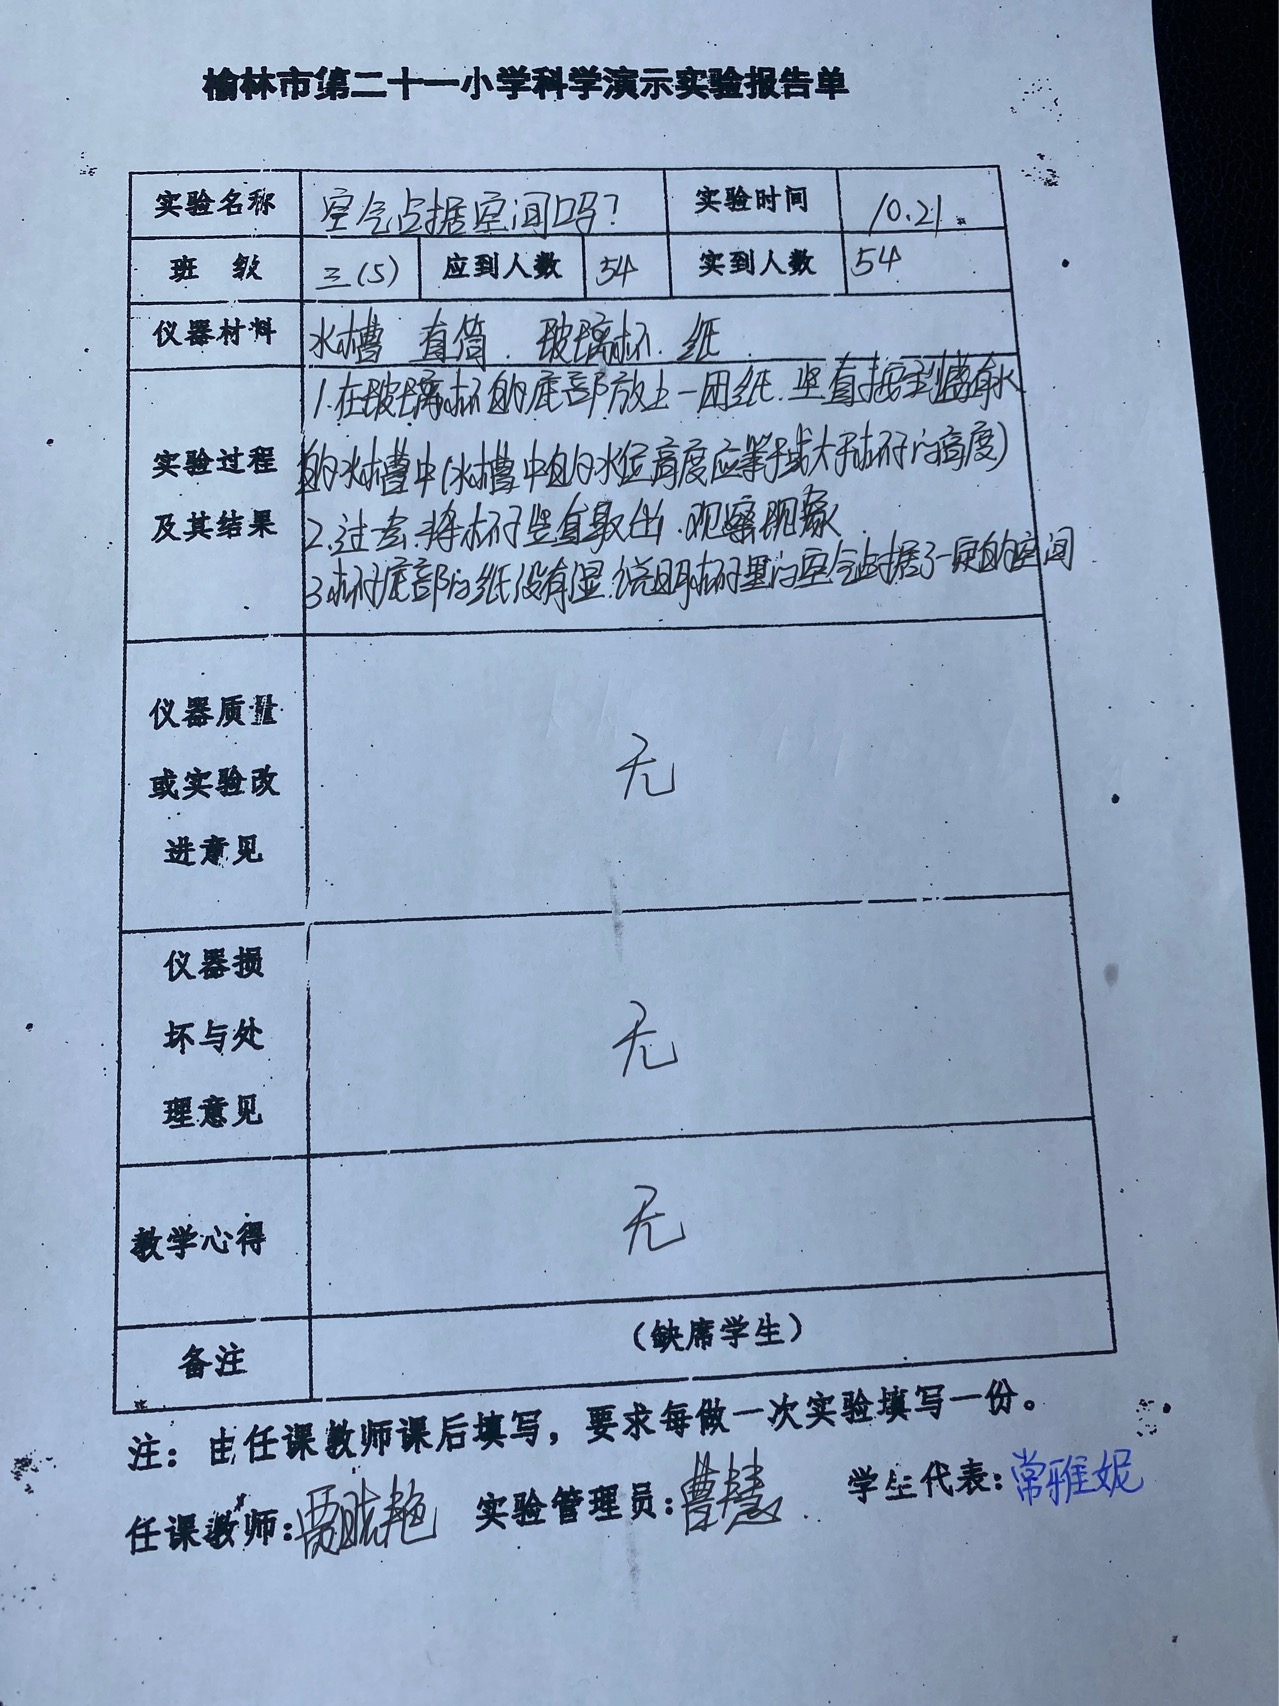 榆林市第二十一小学科学演示实验报告单
实验名称 空气占据空间吗? 实验时间 10.21
班 级 三(5) 应到人数 54 实到人数 54
仪器材料 水槽 直筒. 玻璃杯. 纸
实验过程及其结果
1.在玻璃杯的底部放上一团纸.竖直按到槽有水
的水槽中(水槽中的水位高度应等于或大于杯子的高度)
2.过会.将杯子竖直取出.观察现象
3.杯子底部的纸没有湿.说明杯子里的空气占据了一定的空间
仪器质量
或实验改
进意见
无
仪器损
坏与处
理意见
无
教学心得 无
备注 (缺席学生)
注：由任课教师课后填写，要求每做一次实验填写一份。
任课教师: 实验管理员:曹慧 学生代表:常雅妮